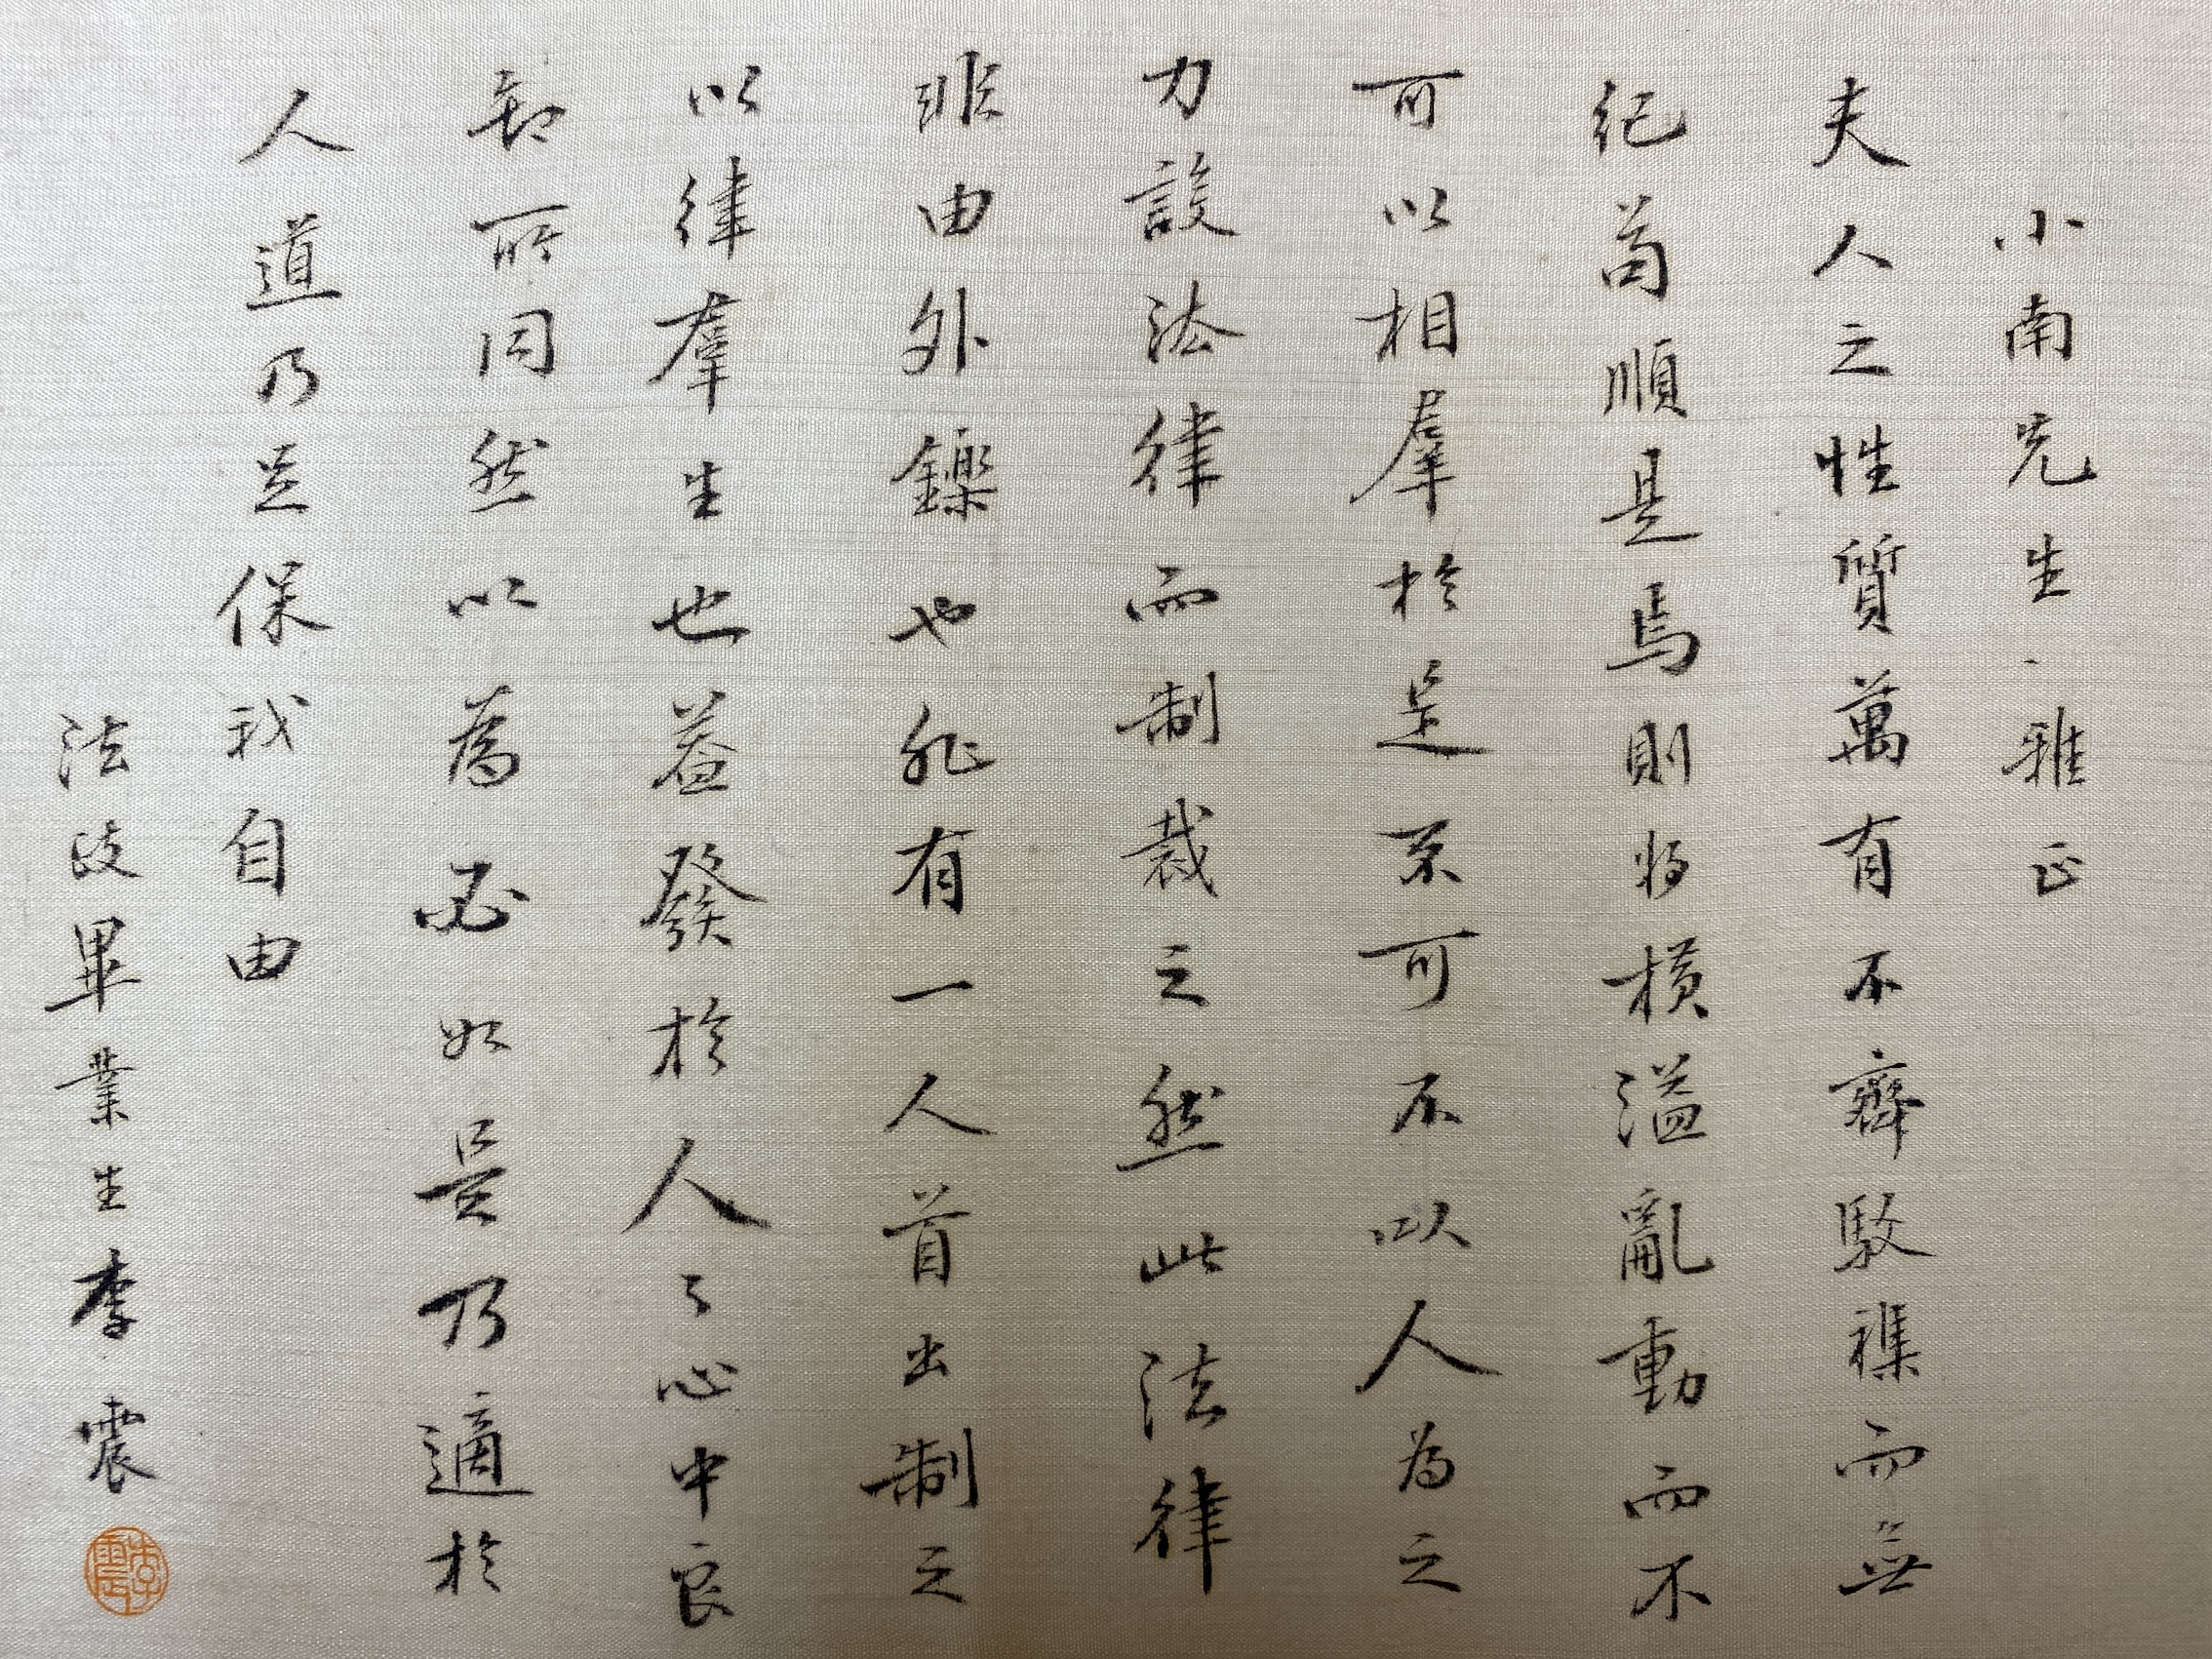 小南先生 雅正
夫人之性質萬有不齊駁襍而無
紀苟順是焉則將橫溢亂動而不
可以相羣於是不可不以人為之
力設法律而制裁之然此法律
非由外鑠也非有一人首出制之
以律羣生也蓋發於人々心中良
知所同然以為必如是乃適於
人道乃足保我自由
法政畢業生李震
李震